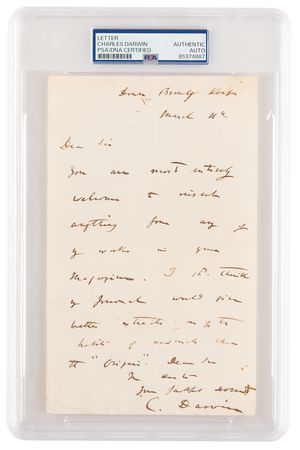 LETTER
CHARLES DARWIN
PSA/DNA CERTIFIED
AUTHENTIC
AUTO
85374887
PSA
Down Bromley Kent
March 11th
Dear Sir
You are most entirely
welcome to insert
anything from any of
my works in your
Magazine. I sh. think
my Journal would give
better extracts on the
habits of animals than
the "Origin". Dear Sir
In Haste
Your faithful servant
C. Darwin